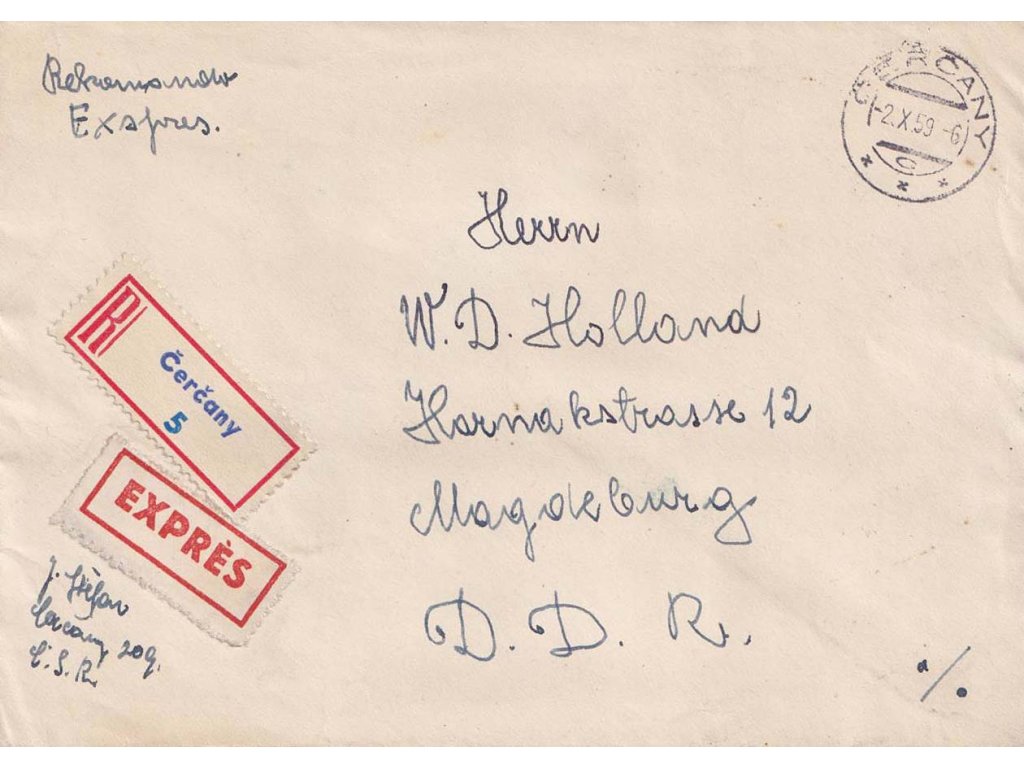 Rekomando
Expres.
ČERČANY
-2.X.59-6
C
Herrn
W. D. Holland
Harnakstrasse 12
Magdeburg
D. D. R.
R
Čerčany
5
EXPRÈS
J. Štěfan
Čerčany 209.
Č. S. R.